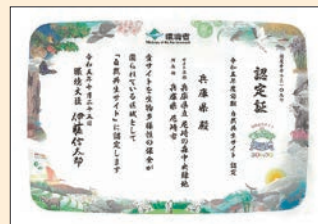 環境省
認定証
令和五年度前期 自然共生サイト 認定
兵庫県 殿
サイト名 兵庫県立尼崎の森中央緑地
所在地 兵庫県 尼崎市
貴サイトを生物多様性の保全が
図られている区域として
「自然共生サイト」に認定します
令和五年十月二十五日
環境大臣 伊藤信太郎